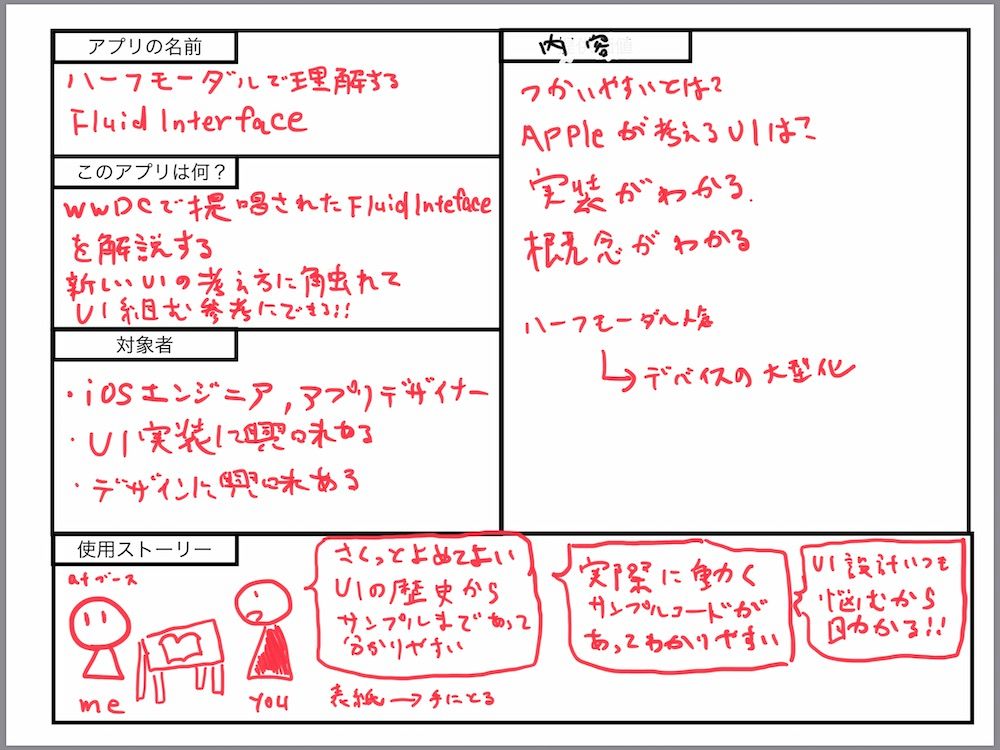 アプリの名前
ハーフモーダルで理解する
Fluid Interface
このアプリは何？
WWDCで提唱されたFluid Inteface
を解説する
新しいUIの考え方に触れて
UI組む参考にできる!!
対象者
・iOSエンジニア,アプリデザイナー
・UI実装に興味ある
・デザインに興味ある
内容
つかいやすいとは?
Appleが考えるUIは?
実装がわかる.
概念がわかる
ハーフモーダル人気
デバイスの大型化
使用ストーリー
atブース
me
you
さくっとよめてよい
UIの歴史から
サンプルまであって
分かりやすい
表紙→手にとる
実際に動く
サンプルコードが
あってわかりやすい
UI設計いつも
悩むから
助かる!!